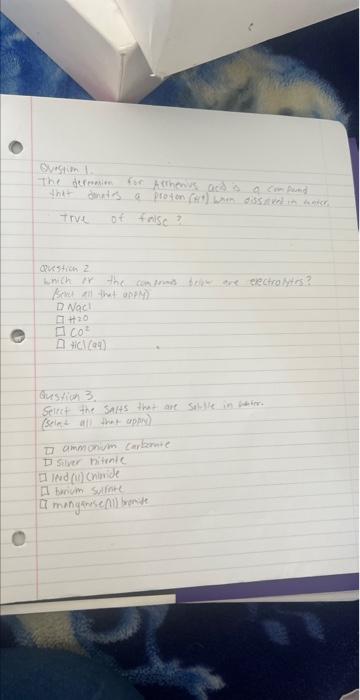 Question 1.
The definition for Arrhenius acid is a compound
that donates a proton (H+) when dissolved in water.
True of false?
Question 2
which of the compounds below are electrolytes?
(select all that apply)
□ NaCl
□ H2O
□ CO²
□ HCl(aq)
Question 3.
Select the salts that are soluble in water.
(select all that apply)
□ ammonium carbonate
□ silver
□ lead(II) chloride
□ barium sulfate
□ manganese(II) bromide